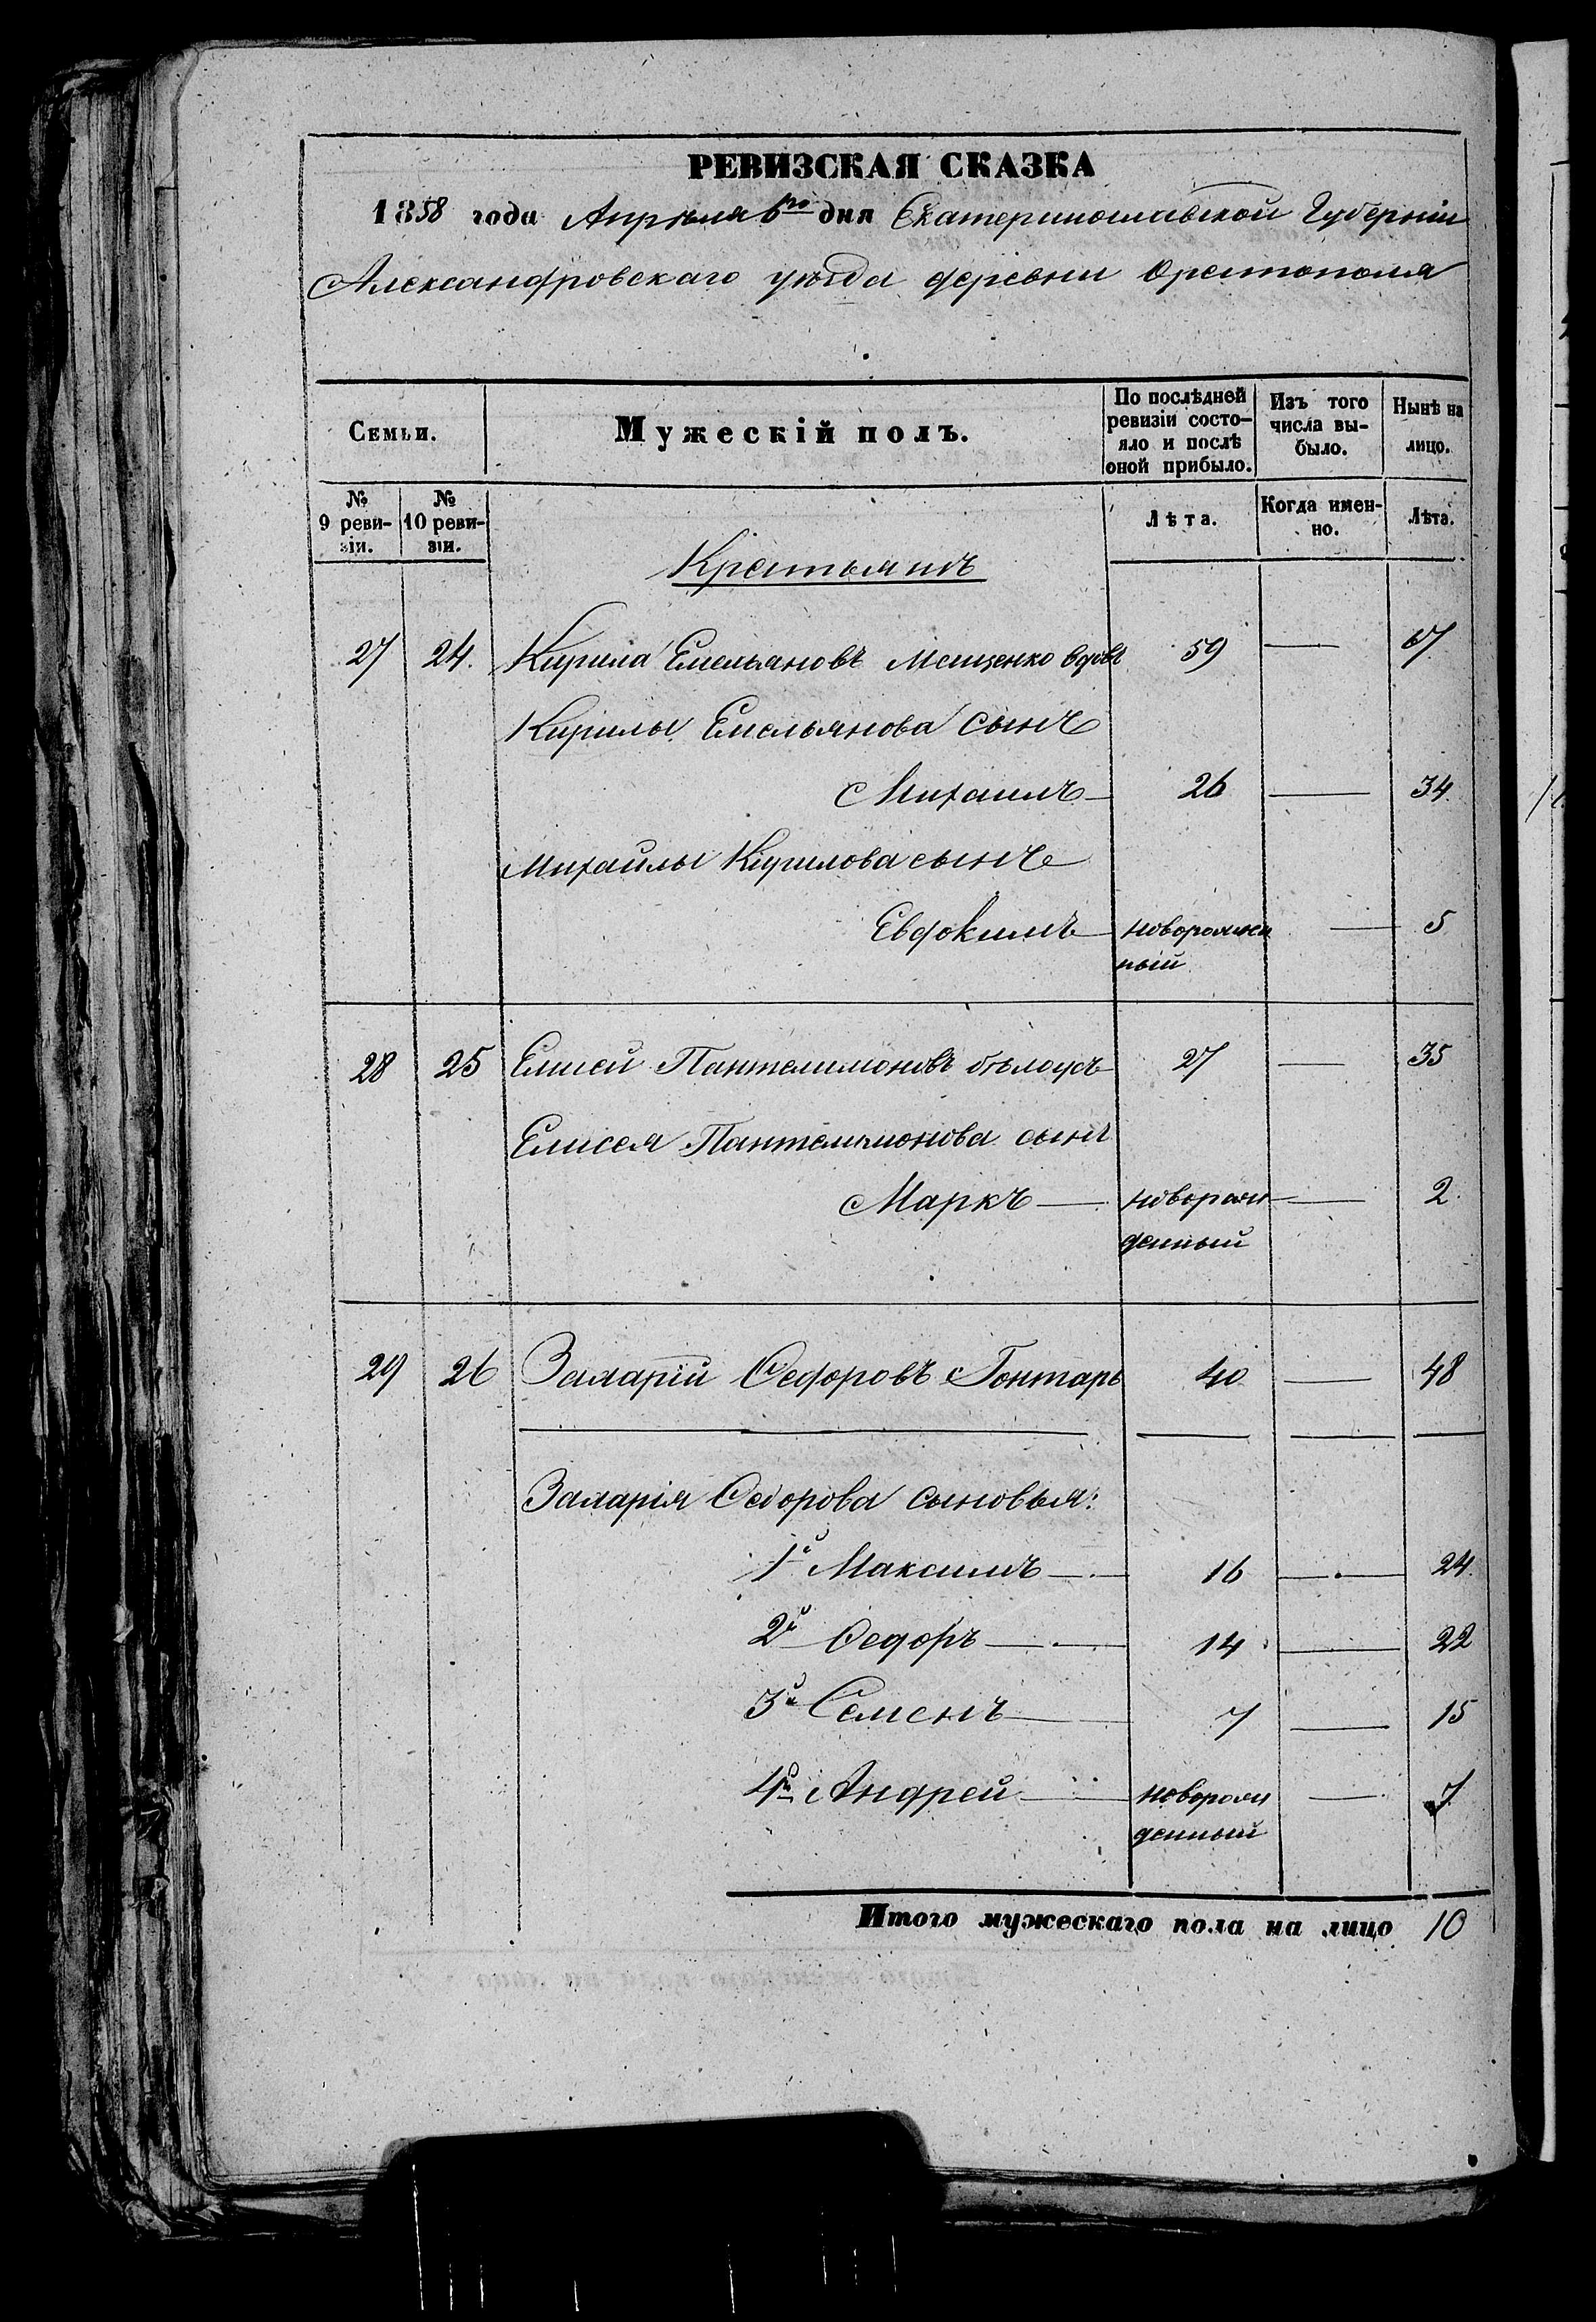 РЕВИЗСКАЯ СКАЗКА
1858 года Апрѣля 6го дня Екатеринославской Губерніи
Александровскаго уѣзда деревни Орестополя
Семьи. Мужескій полъ. По послѣдней ревизіи состо-яло и послѣ оной прибыло. Изъ того числа вы-было. Нынѣ на лицо.
№ 9 реви-зіи. № 10 реви-зіи. Лѣта. Когда имен-но. Лѣта.
Крестьянъ
27 24. Кирила Емельяновъ Мещенко вдовъ 59 — 67
Кирилы Емельянова сынъ
Михаилъ 26 — 34
Михайлы Кирилова сынъ
Евдокимъ новорожден — 5
ный
28 25 Елисей Пантелимоновъ бѣлоусъ 27 — 35
Елисея Пантелимонова сынъ
Маркъ — новорож — 2
денный
29 26 Заларій Ѳедоровъ Гонтарь 40 — 48
Заларія Ѳедорова сыновья:
1й Максимъ — 16 — 24
2й Ѳедоръ — 14 — 22
3й Семенъ — 7 — 15
4й Андрей — новорож — 7
денный
Итого мужескаго пола на лицо 10